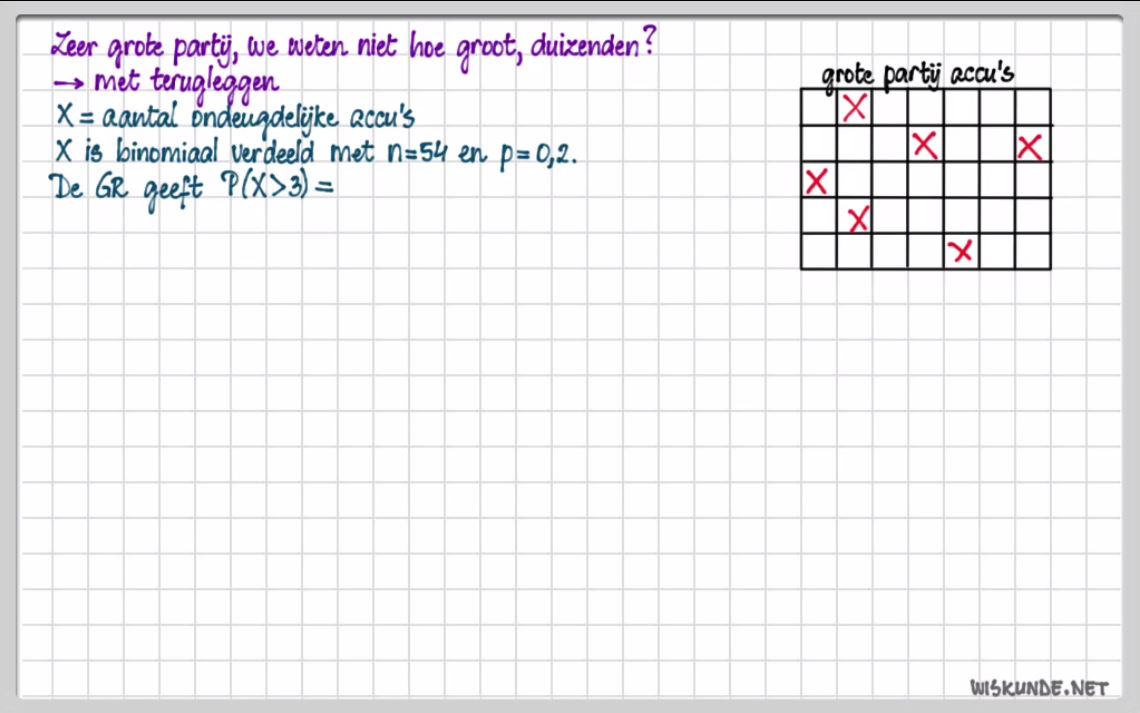 Zeer grote partij, we weten niet hoe groot, duizenden?
→ met terugleggen
X = aantal ondeugdelijke accu's
X is binomiaal verdeeld met n=54 en p=0,2.
De GR geeft P(X>3) =
grote partij accu's
WISKUNDE.NET